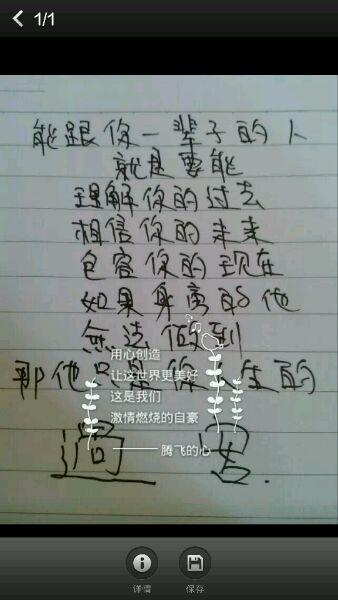 1/1
能跟你一辈子的人
就是要能
理解你的过去
相信你的未来
包容你的现在
如果身离的他
无法做到
那他只是你人生的
用心创造
让这世界更美好
这是我们
激情燃烧的自豪
腾飞的心
过客
详情
保存